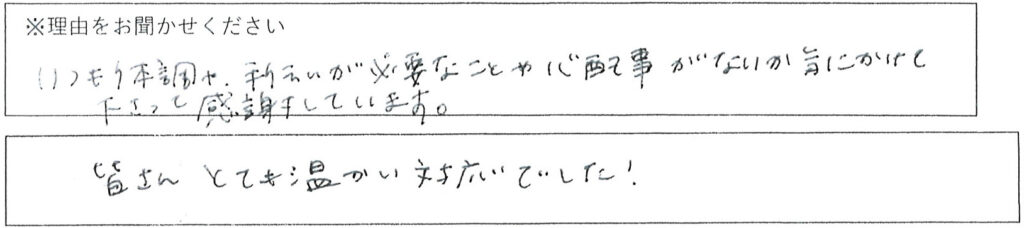 ※理由をお聞かせください
いつも体調や、手伝いが必要なことや心配事がないか気にかけて
下さって感謝しています。
皆さんとても温かい対応でした!